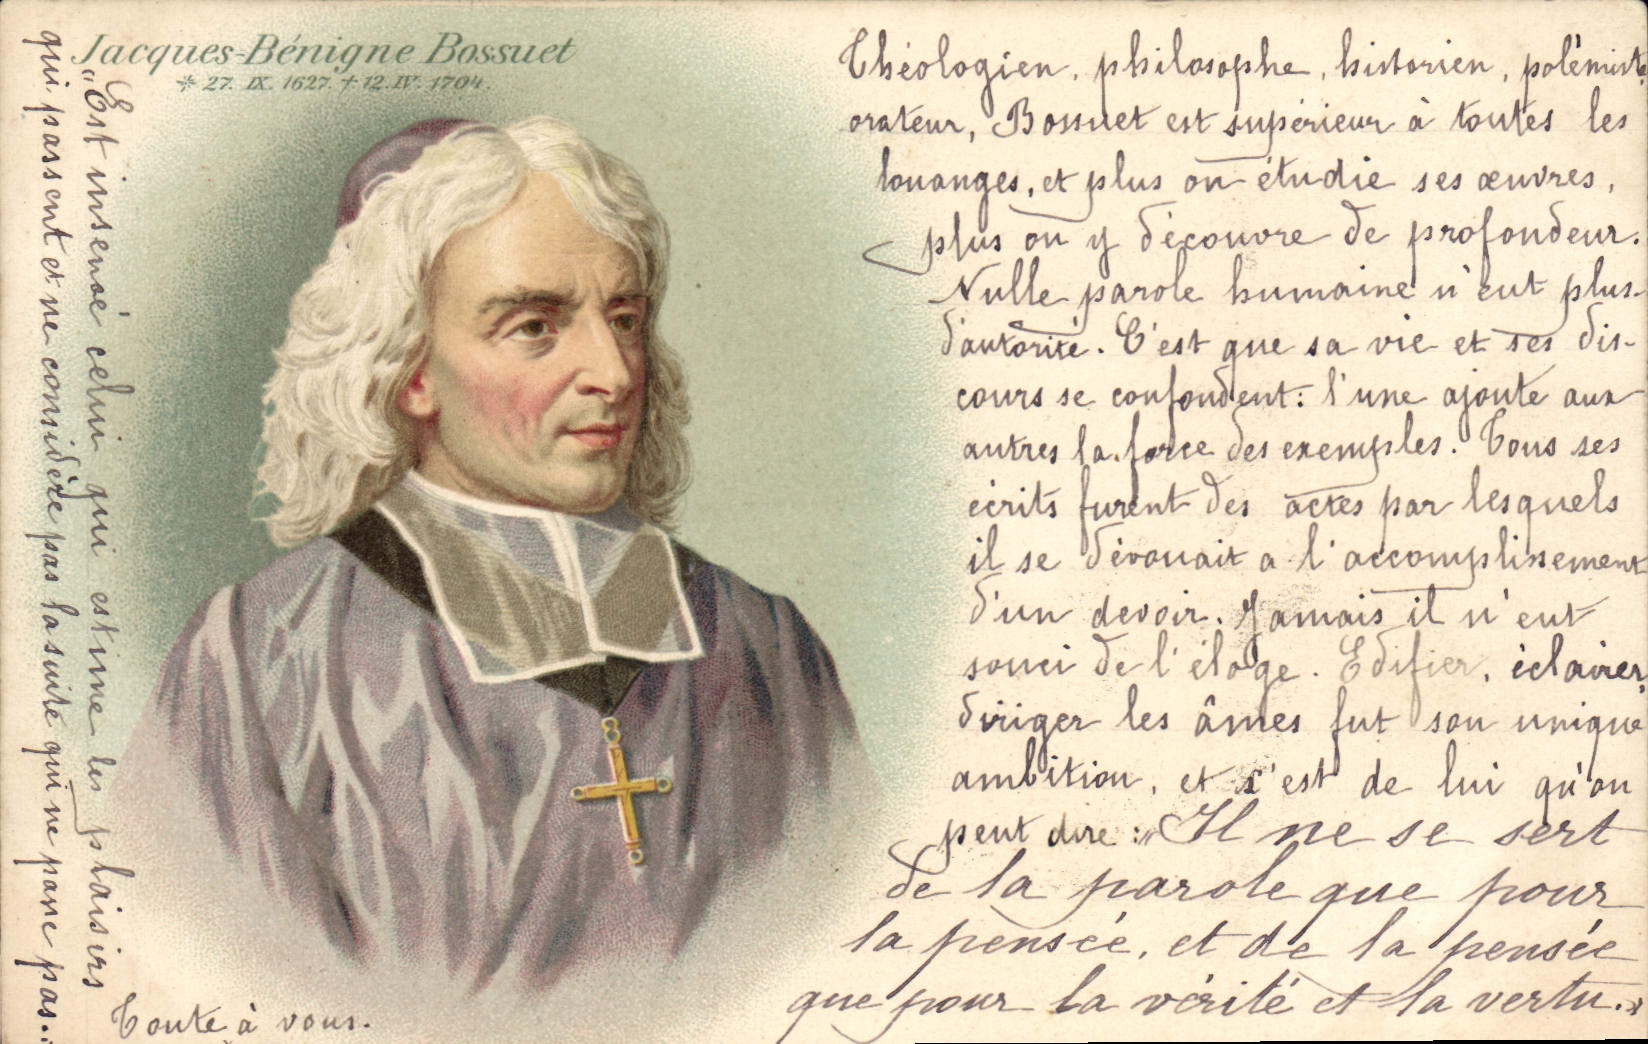 Jacques-Bénigne Bossuet
* 27. IX. 1627. + 12. IV. 1704.
Théologien, philosophe, historien, polémiste
orateur, Bossuet est supérieur à toutes les
louanges, et plus on étudie ses œuvres,
plus on y découvre de profondeur.
Nulle parole humaine n'eut plus
d'autorité. C'est que sa vie et ses dis-
cours se confondent: l'une ajoute aux
autres la force des exemples. Tous ses
écrits furent des actes par lesquels
il se dévouait a l'accomplissement
d'un devoir. Jamais il n'eut
souci de l'éloge. Edifier, éclairer,
diriger les âmes fut son unique
ambition, et s'est de lui qu'on
peut dire : « Il ne se sert
de la parole que pour
la pensée, et de la pensée
que pour la vérité et la vertu. »
"Est insensé celui qui estime les plaisirs
qui passent et ne considère pas la suite qui ne passe pas..
Toute à vous.